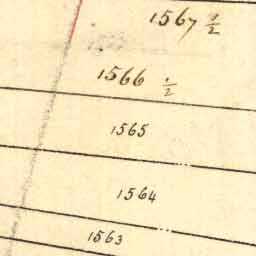 1567 1/2
1566 1/2
1565
1564
1563